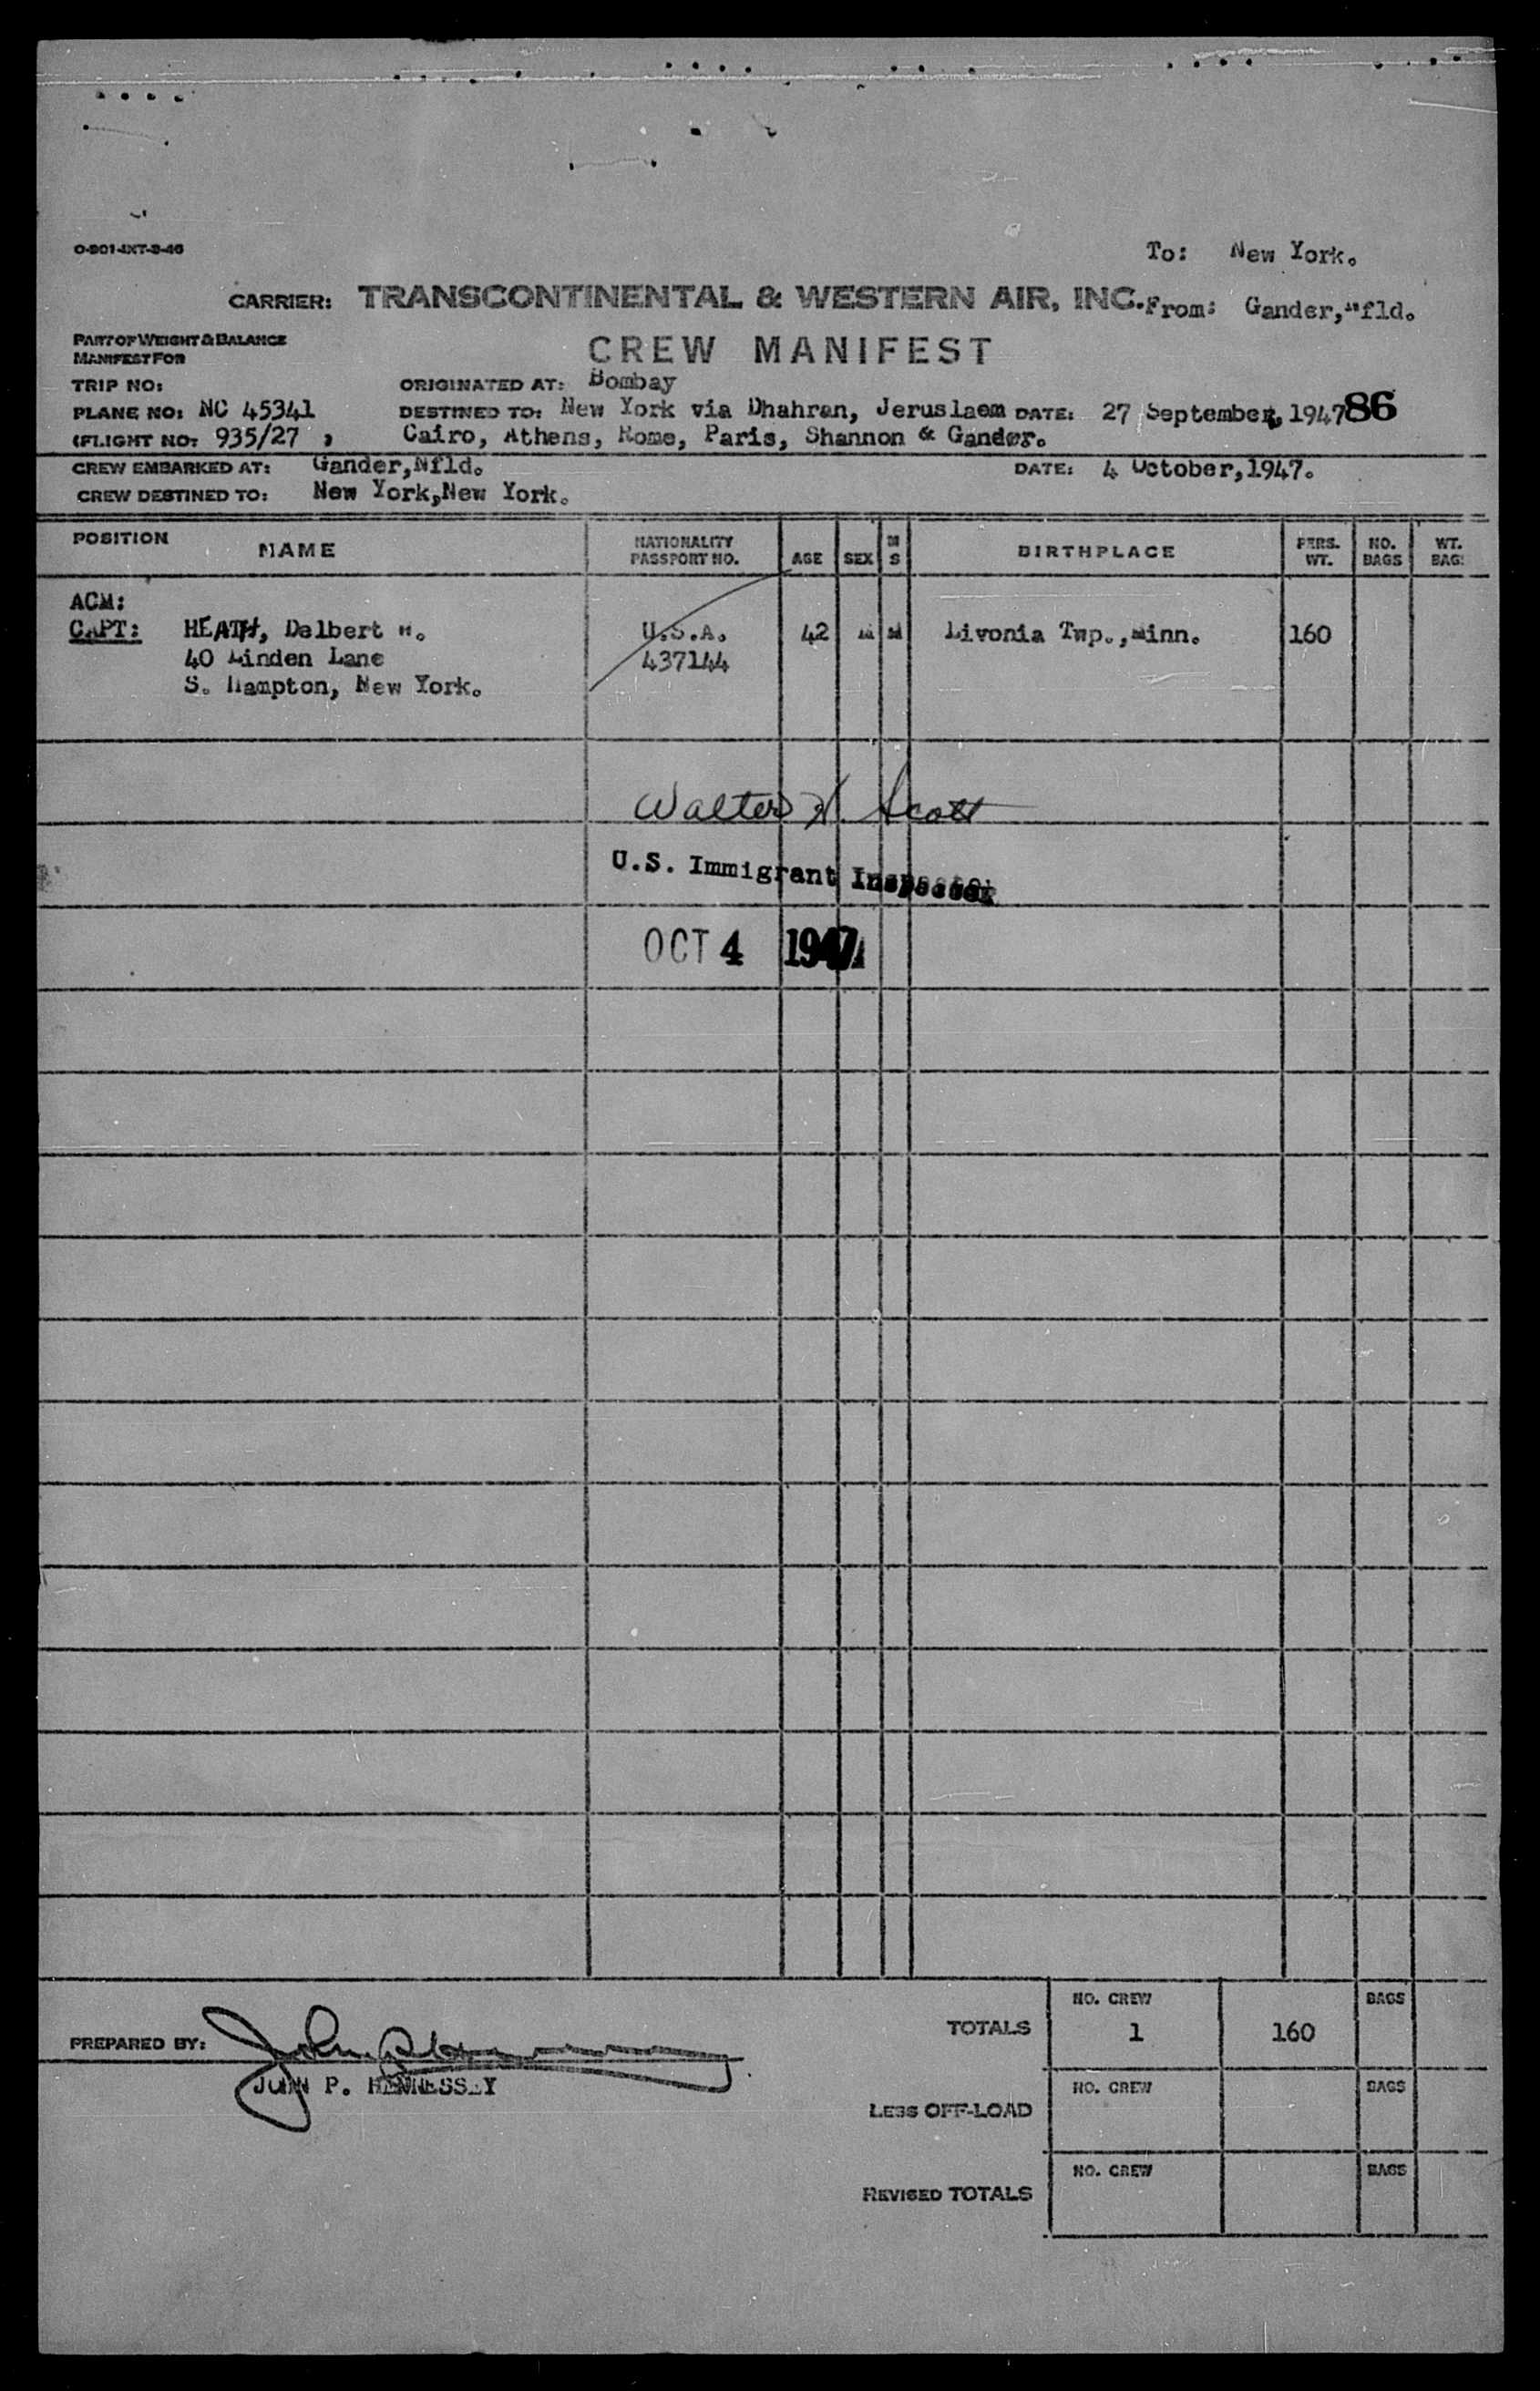 O-901-1XT-9-46
To: New York.
CARRIER: TRANSCONTINENTAL & WESTERN AIR, INC. From: Gander, Nfld.
PART OF WEIGHT & BALANCE
MANIFEST FOR
CREW MANIFEST
TRIP NO: ORIGINATED AT: Bombay
PLANE NO: NC 45341 DESTINED TO: New York via Dhahran, Jeruslaem DATE: 27 September, 1947 86
(FLIGHT NO: 935/27 ) Cairo, Athens, Rome, Paris, Shannon & Gander.
CREW EMBARKED AT: Gander,Nfld. DATE: 4 October,1947.
CREW DESTINED TO: New York,New York.
POSITION NAME NATIONALITY PASSPORT NO. AGE SEX M S BIRTHPLACE PERS. WT. NO. BAGS WT. BAGS
ACM:
CAPT: HEATH, Delbert U.S.A. 42 M M Livonia Twp.,Minn. 160
40 Linden Lane 437144
S. Hampton, New York.
Walter H. Scott
U.S. Immigrant Inspector
OCT 4 1947
NO. CREW BAGS
TOTALS 1 160
PREPARED BY: John P. Hennessey
JOHN P. HENNESSEY
NO. CREW BAGS
LESS OFF-LOAD
NO. CREW BAGS
REVISED TOTALS